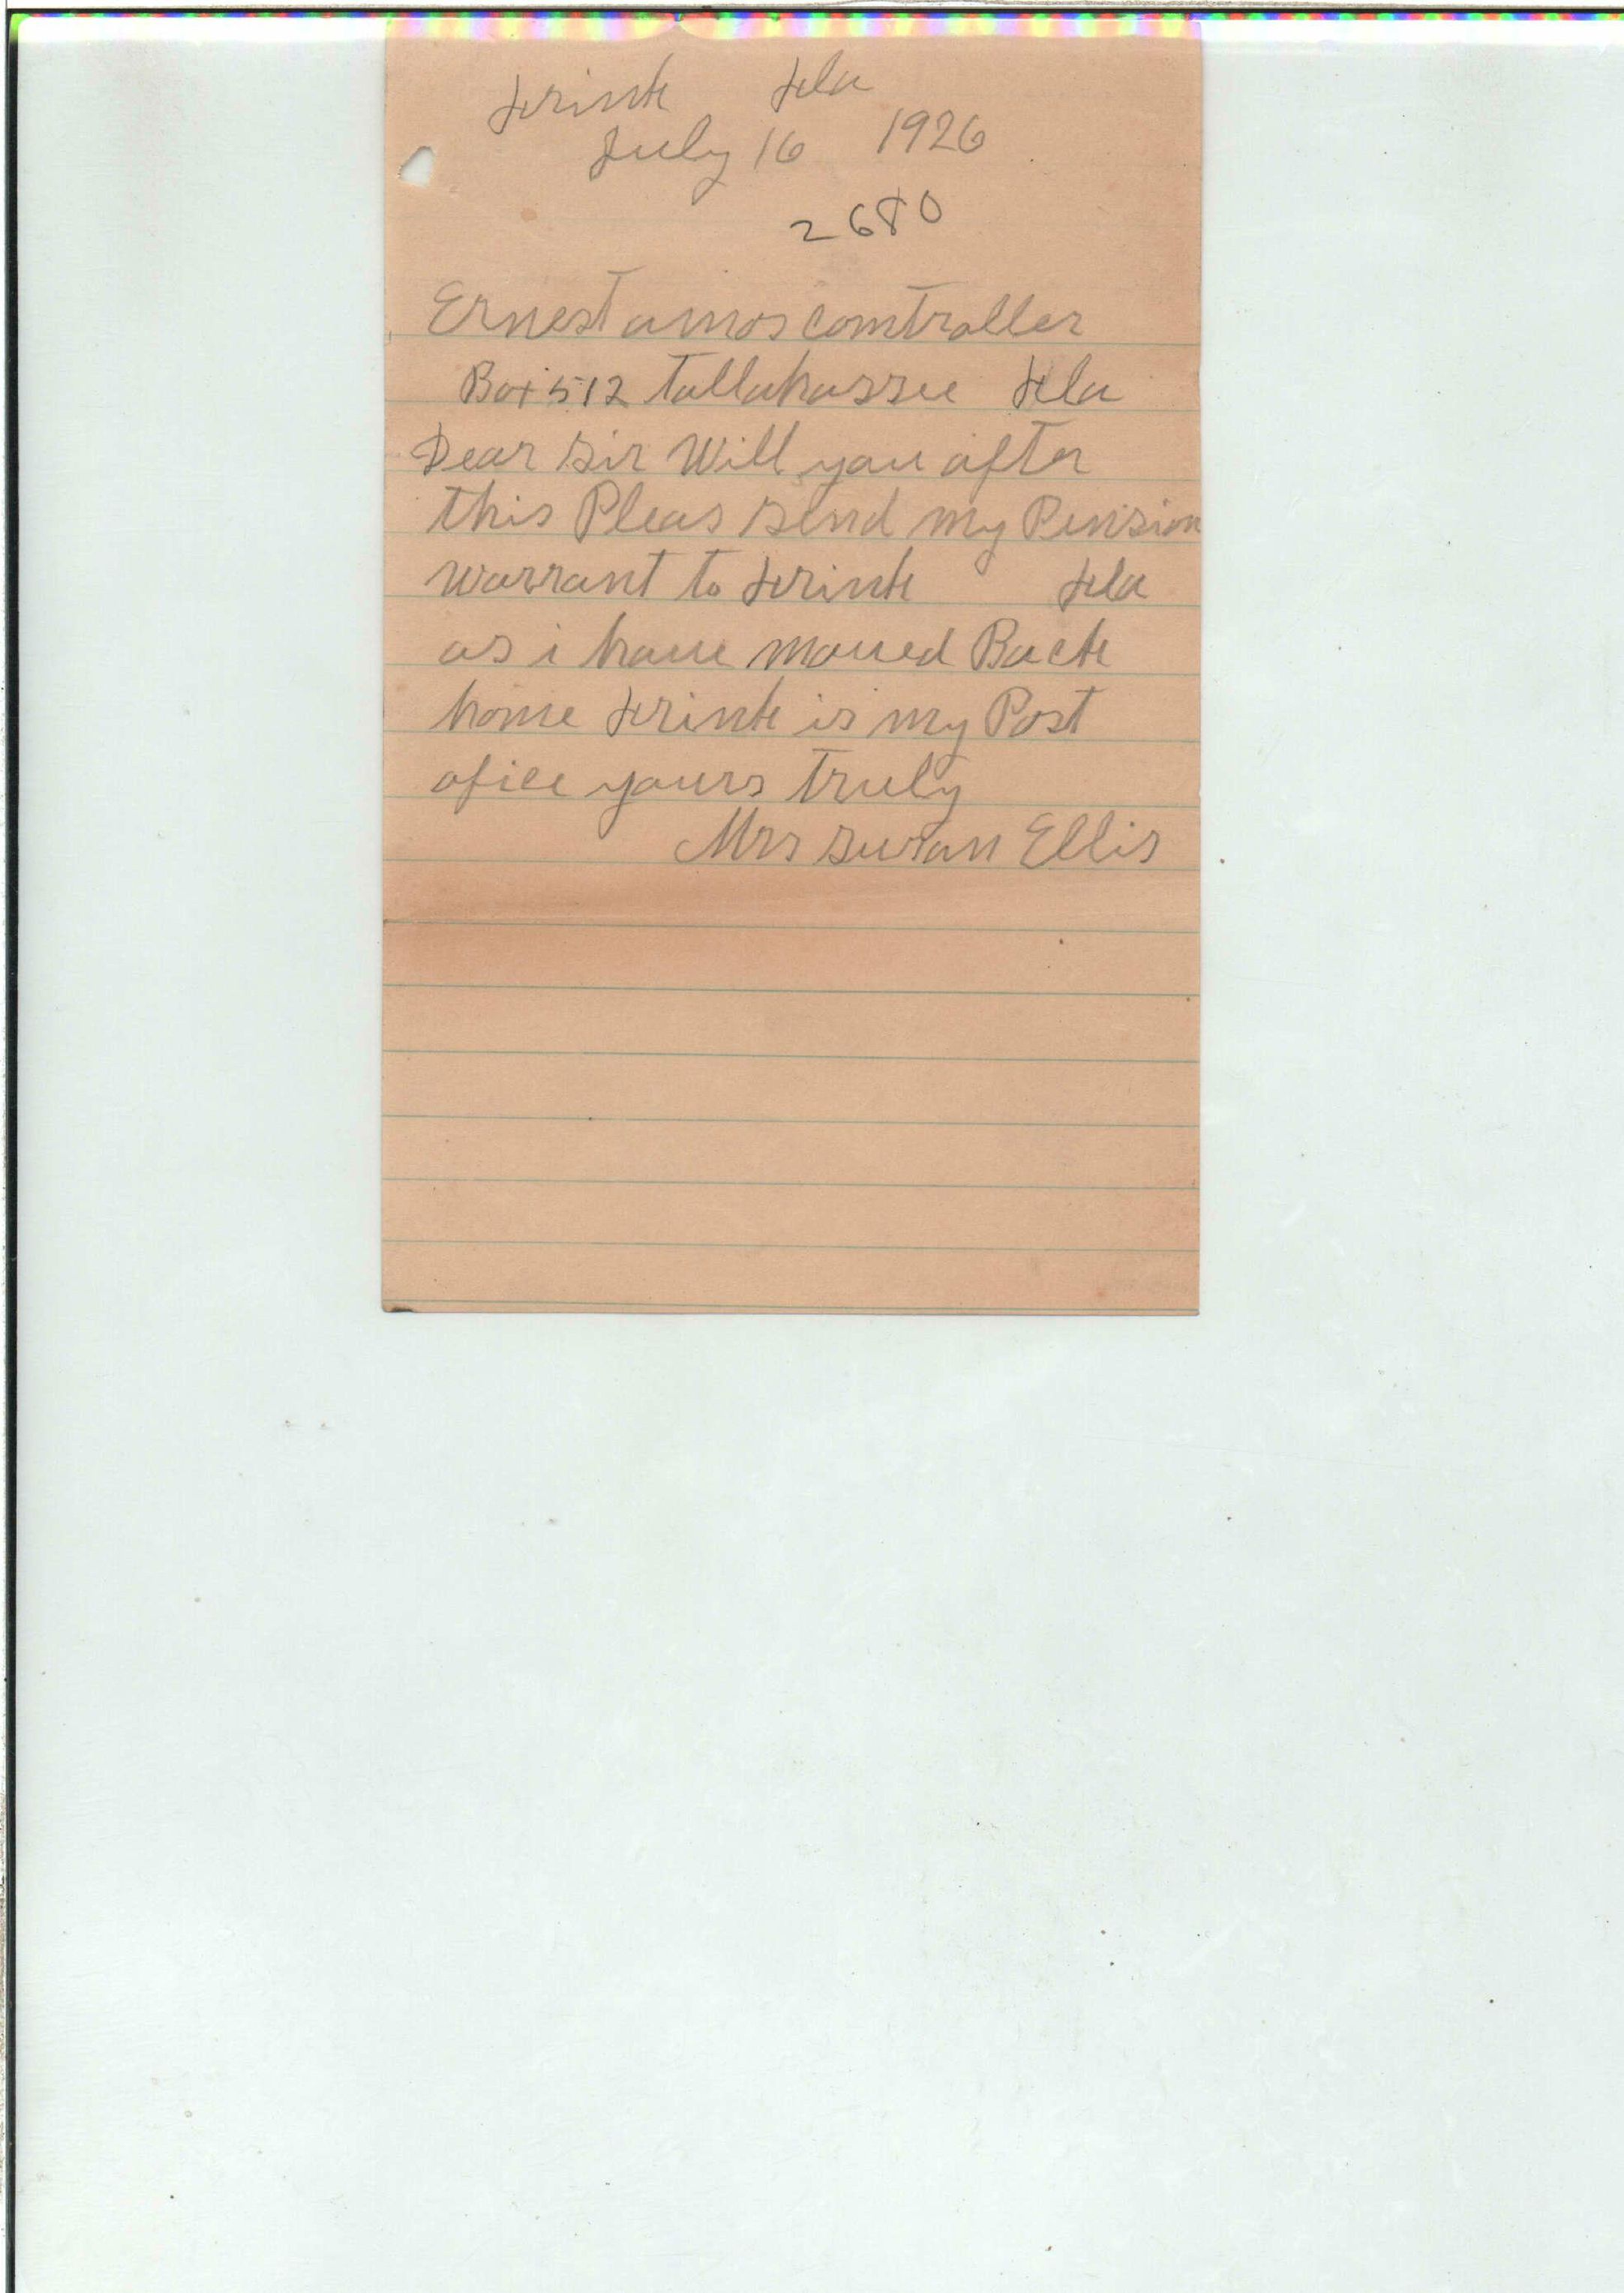 Frink Fla
July 16 1926
2680
Ernest amos comtroller
Box 512 Tallahassee Fla
Dear Sir Will you after
this Pleas send my Pension
warrant to Frink Fla
as i have moved Back
home Frink is my Post
ofice yours truly
Mrs Susan Ellis